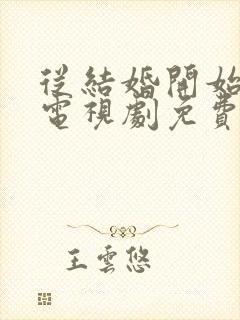 從結婚開始
電視劇免費
王雲悠